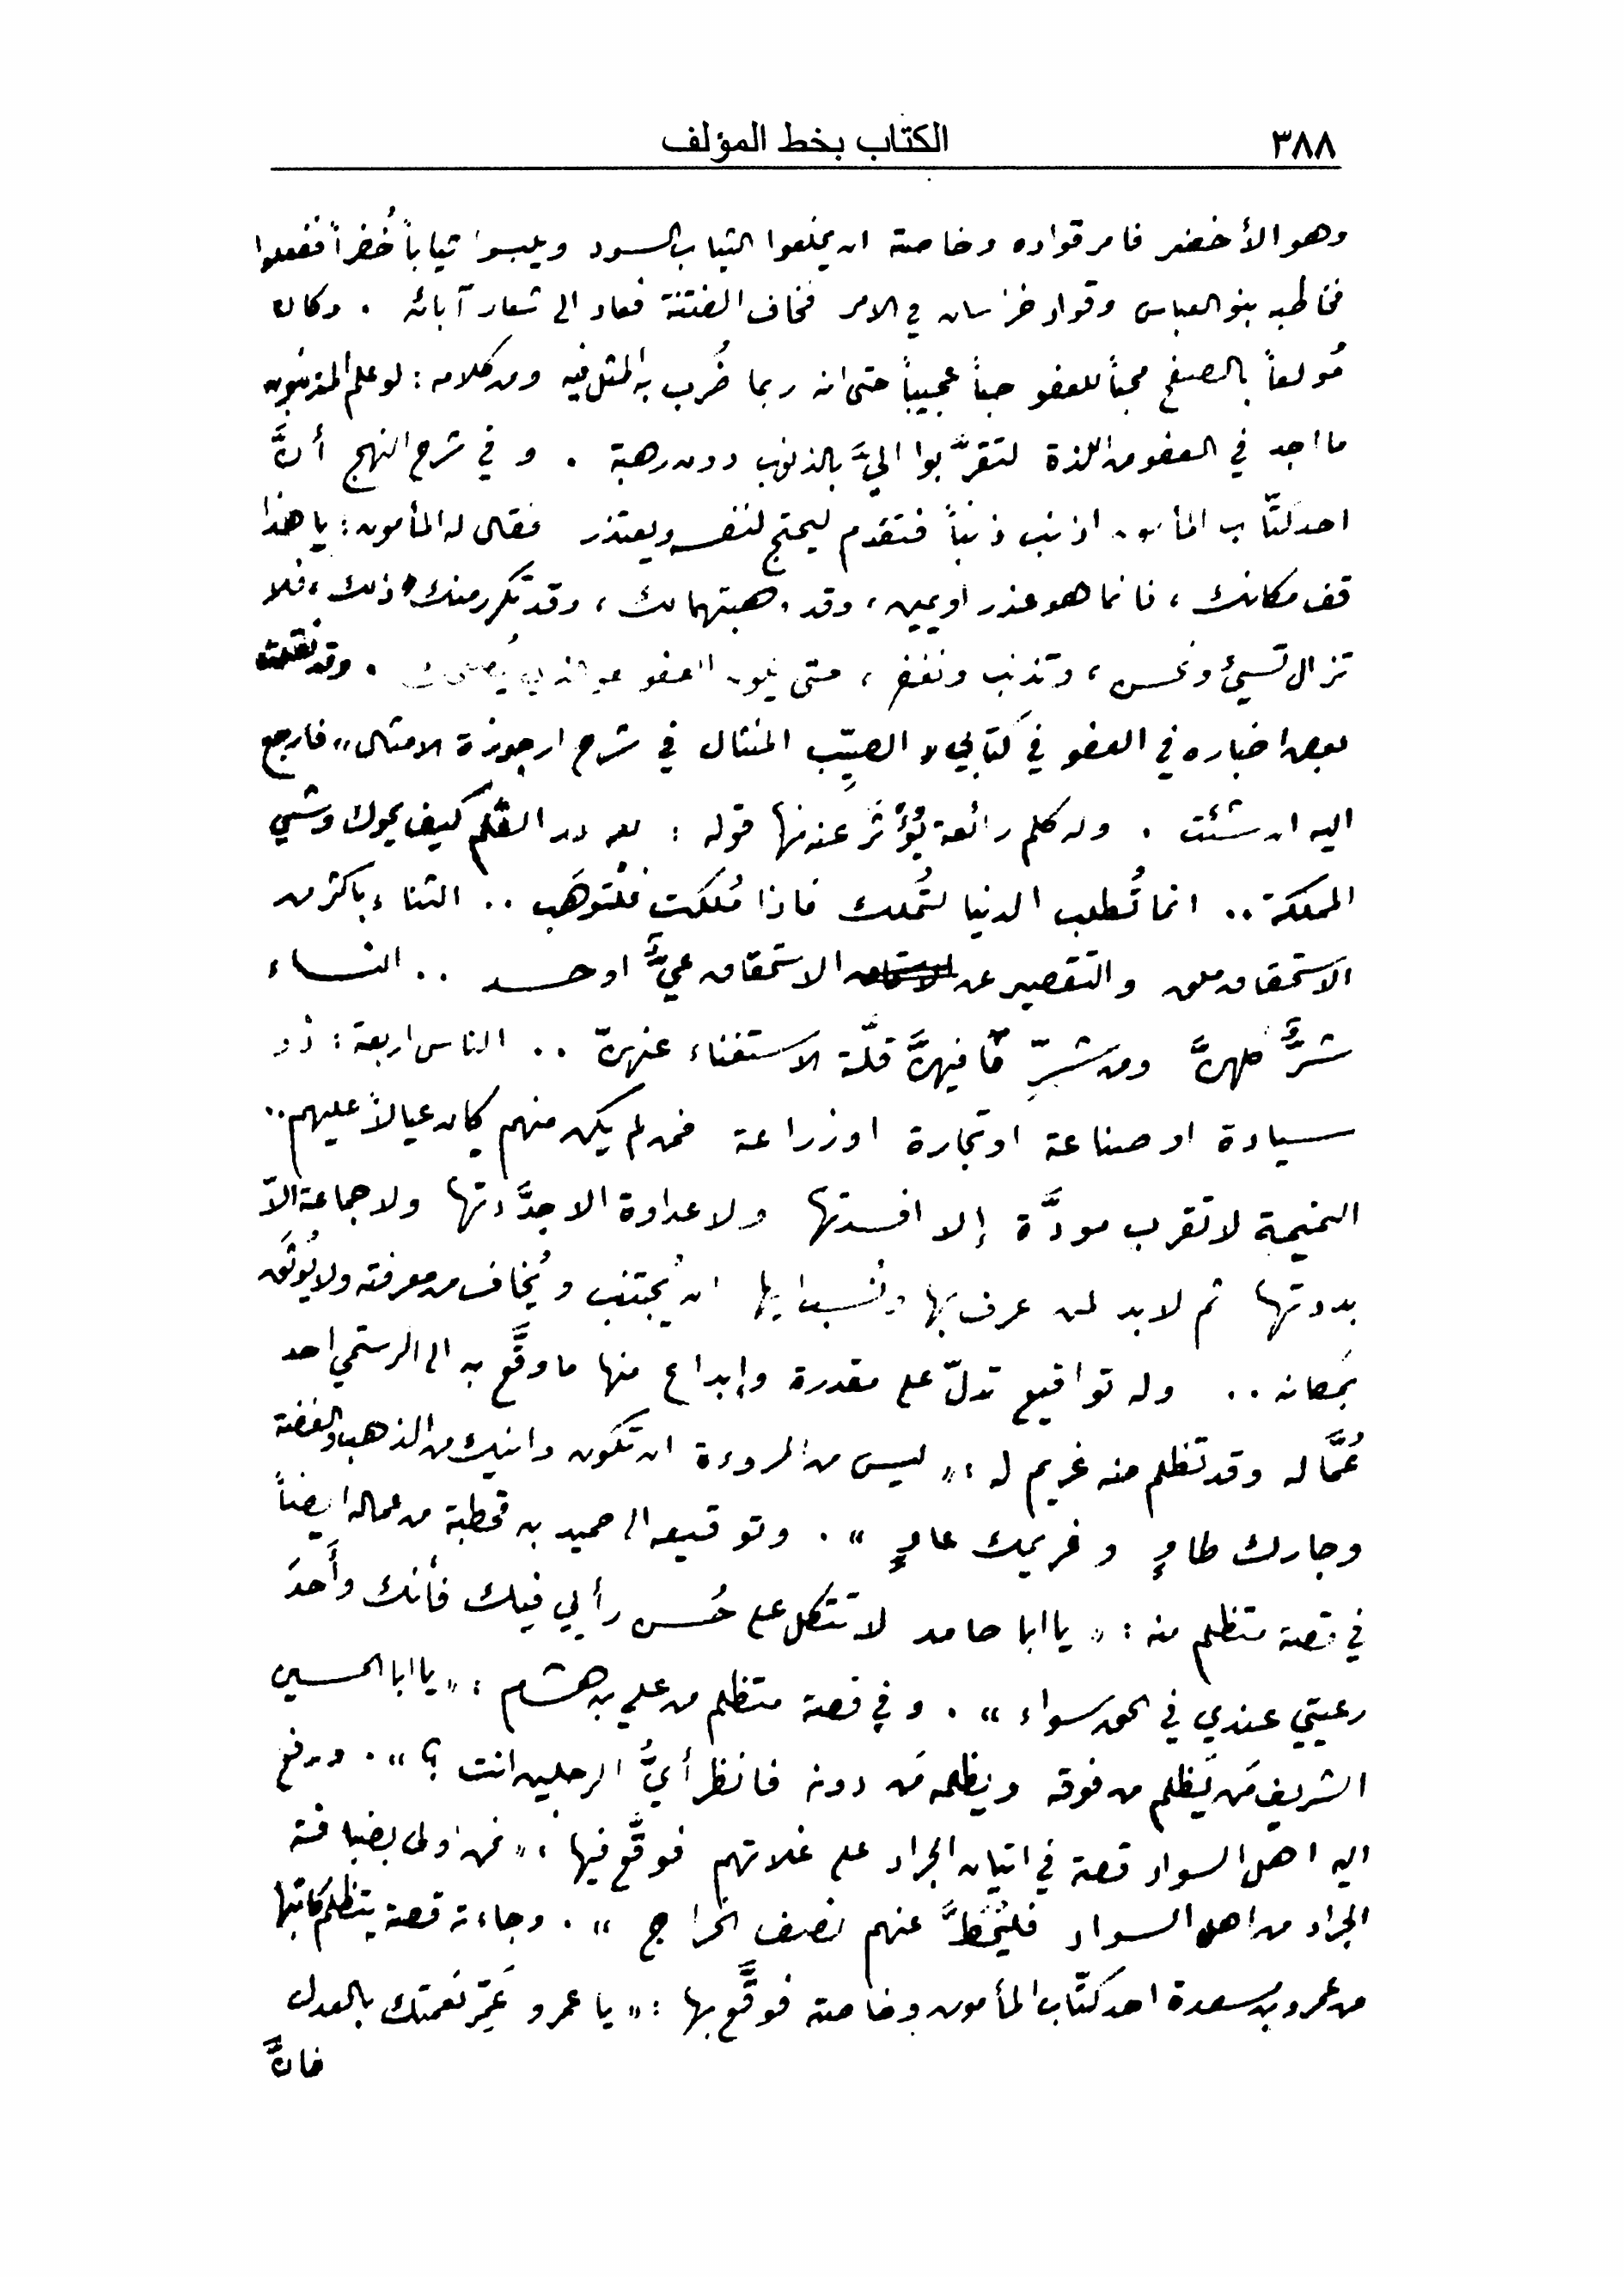 ٣٨٨
الكتاب بخط المؤلف
وهو الأخضر فامر قواده وخاصته ان يخلعوا الثياب السود ويلبسوا ثياباً خُضراً ففعلوا
فخاطبه بنو العباس وقواد خراسان في الامر فخاف الفتنة فعاد الى شعار آبائه . وكان
مُولعاً بالصفح محباً للعفو حباً عجيباً حتى انه ربما ضُرب به المثل فيه ومن كلامه : لو علم المذنبون
ما اجد في العفو من اللذة لتقرَّبوا اليَّ بالذنوب دون رهبة . و في شرح النهج أنَّ
احد كتّاب المأمون اذنب ذنباً فتقدم ليحتج لنفسه ويعتذر فقال له المأمون : يا هذا
قف مكانك ، فانما هو عذر او يمين ، وقد وهبتهما لك ، وقد تكرر منك ذلك ، فلا
تزال تسيئ ونحسن ، وتذنب ونغفر ، حتى يكون العفو هو الذي يُصلحك . وقد نقلت
بعض اخباره في العفو في كتابي « الصيِّب المنثال في شرح ارجوزة الامثال » فارجع
اليه ان شئت . وله كلم رائعة يُؤْثَر عنه منها قوله : لله در القلم كيف يحوك وشي
المملكة .. انما تُطلب الدنيا لتُملك فاذا مُلكت فلتوهَب .. الثناء باكثر من
الاستحقاق ملق والتقصير عن الاستحقاق عيٌّ او حسد .. النساء
شرٌّ كلهنَّ ومن شرِّ ما فيهنَّ قلّة الاستغناء عنهنّ .. الناس اربعة : ذو
سيادة او صناعة او تجارة او زراعة فمن لم يكن منهم كان عيالاً عليهم ..
النميمة لا تقرب مودَّة إلا افسدتها ولا عداوة الا جدَّدتها ولا جماعة الاّ
بددتها ثم لا بد لمن عرف بها ونُسب اليها ان يُجتنب ويُخاف من معرفته ولا يُوثَق
بمكانه .. وله تواقيع تدلّ على مقدرة وإبداع منها ما وقَّع به الى الرستمي احد
عُمَّاله وقد تظلم منه غريم له : « ليس من المروءة ان تكون وانيك من الذهب والفضة
وجارك طاوٍ وغريمك عاوٍ » . وتوقيعه الى حميد بن قحطبة من عماله ايضاً
في قصة متظلم منه : « يا ابا حامد لا تتكل على حُسن رأيي فيك فأنك وأَحدَ
رعيتي عندي في الحق سواء » . و في قصة متظلم من علي بن هشام : « يا ابا الحسين
الشريف مَن يَظلم من فوقه ويظلمه مَن دونه فانظر أيُّ الرجلين انت ؟ » . ورفع
اليه اهل السواد قصة في اتيان الجراد على غلاتهم فوقَّع فيها : « نحن اولى بضيافة
الجراد من اهل السواد فليُحَطَّ عنهم نصف الخراج » . وجاءته قصة يتظلم كاتبها
من عمرو بن مسعدة احد كتّاب المأمون وخاصته فوقَّع بها : « يا عمرو عَمِّر نعمتك بالعدل
فانَّ